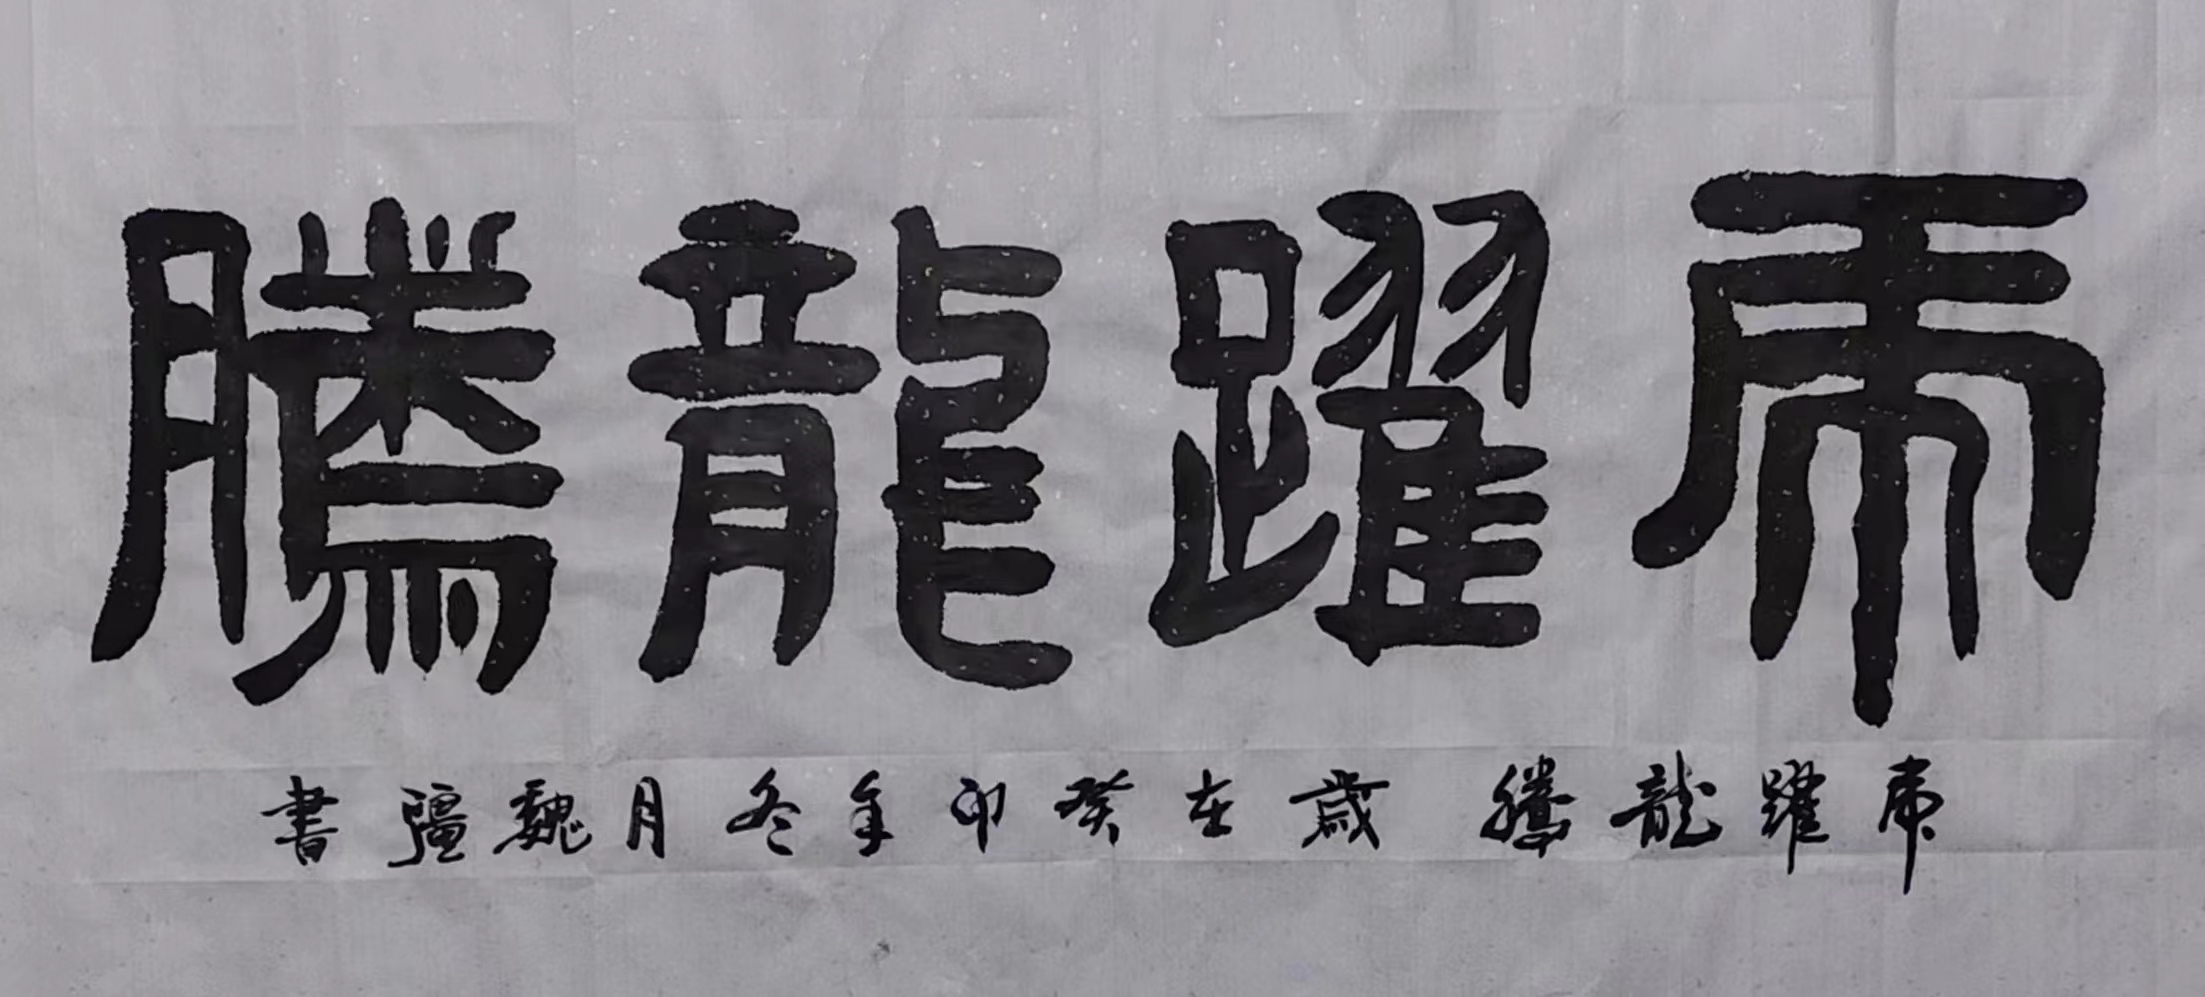 虎躍龍騰
虎躍龍騰 歲在癸卯年冬月魏疆書